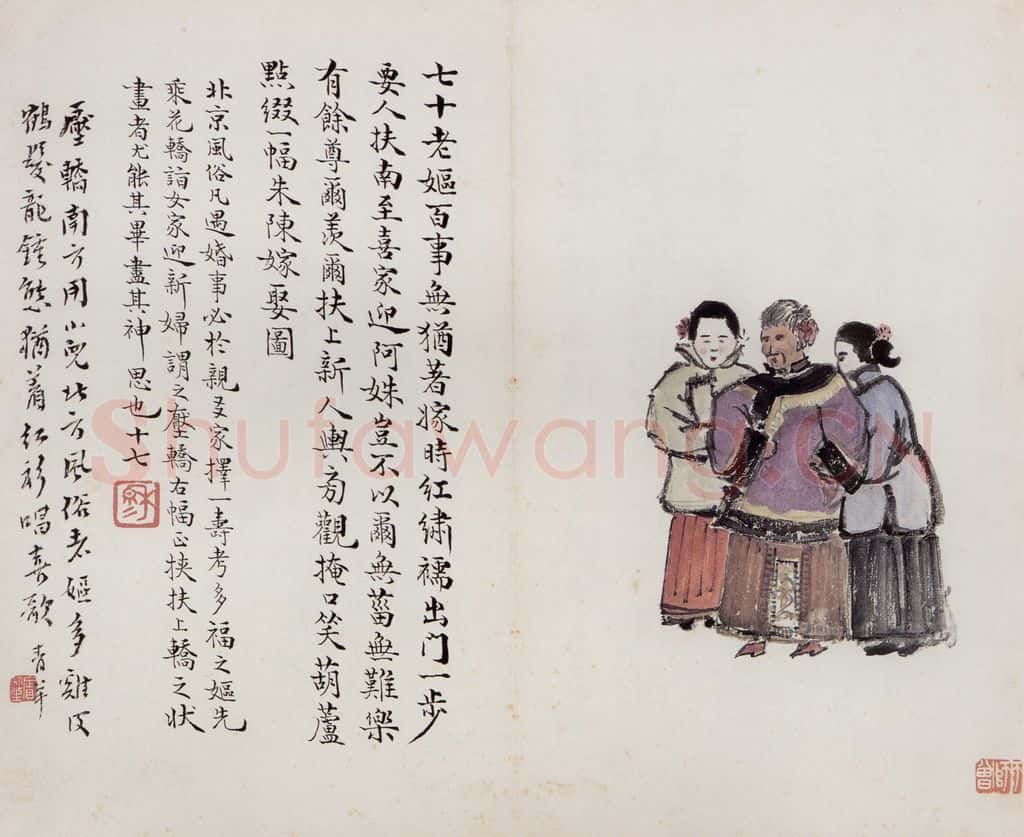 七十老嫗百事無猶著嫁時紅繡襦出门一步
要人扶南至喜家迎阿姝豈不以爾無菑無難樂
有餘尊爾羡爾扶上新人輿旁觀掩口笑葫蘆
點綴一幅朱陳嫁娶圖
北京風俗凡遇婚事必於親友家擇一壽考多福之嫗先
乘花轎詣女家迎新婦謂之壓轎右幅正挾扶上轎之狀
畫者尤能其畢盡其神思也十七
壓轎南方用小兒北方風俗老嫗多雞皮
鶴髮龍鍾態猶着紅衫唱喜歌 青羊
Shufawang.CN
師曾